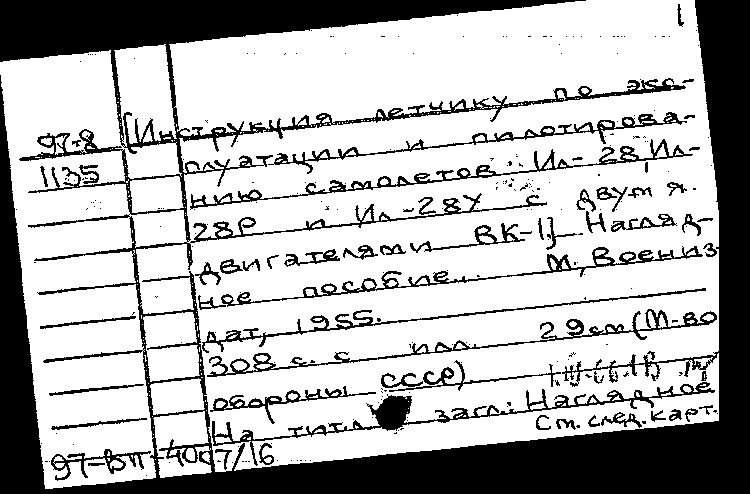 1
97-8 [Инструкция летчику по экс-
1135 плуатации и пилотирова-
нию самолетов Ил-28, Ил-
28Р и Ил-28У с двумя
двигателями ВК-1]. Нагляд-
ное пособие. М., Воениз-
дат, 1955.
308 с. с илл. 29 см (М-во
обороны СССР).
На тит.л. загл.: Наглядное
См. след. карт.
97-ВП-4007/16